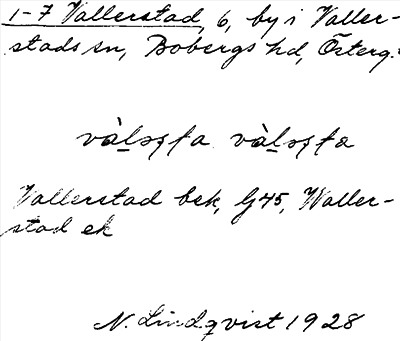 1-7 Vallerstad, 6, by i Valler-
stads sn, Bobergs hd, Österg.
Vallerstad bek, G45, Waller-
stad ek
N. Lindqvist 1928